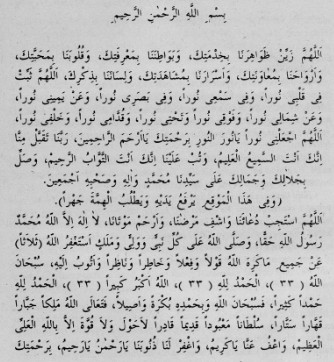 بِسْمِ اللَّهِ الرَّحْمٰنِ الرَّحِيمِ
اَللّٰهُمَّ زَيِّنْ ظَوَاهِرَنَا بِخِدْمَتِكَ، وَبَوَاطِنَنَا بِمَعْرِفَتِكَ، وَقُلُوبَنَا بِمَحَبَّتِكَ،
وَاَرْوَاحَنَا بِمُعَاوَنَتِكَ، وَاَسْرَارَنَا بِمُشَاهَدَتِكَ، وَلِسَانَنَا بِذِكْرِكَ، اَللّٰهُمَّ ثَبِّتْ
فِى قَلْبِى نُوراً، وَفِى سَمْعِى نُوراً، وَفِى بَصَرِى نُوراً، وَعَنْ يَمِينِى نُوراً،
وَعَنْ شِمَالِى نُوراً، وَفَوْقِى نُوراً، وَتَحْتِى نُوراً، وَقُدَّامِى نُوراً، وَخَلْفِى نُوراً،
اَللّٰهُمَّ اجْعَلْنِى نُوراً يَانُورَ النُّورِ بِرَحْمَتِكَ يَااَرْحَمَ الرَّاحِمِينَ، رَبَّنَا تَقَبَّلْ مِنَّا
اِنَّكَ اَنْتَ السَّمِيعُ الْعَلِيمُ، وَتُبْ عَلَيْنَا اِنَّكَ اَنْتَ التَّوَّابُ الرَّحِيمُ، وَصَلِّ
بِجَلَالِكَ وَجَمَالِكَ عَلَى سَيِّدِنَا مُحَمَّدٍ وَاٰلِهِ وَصَحْبِهِ اَجْمَعِينَ.
(وَفِى هٰذَا الْمَوْقِعِ يَرْفَعُ يَدَيْهِ وَيَطْلُبُ الْهِمَّةَ جَهْراً).
اَللّٰهُمَّ اسْتَجِبْ دُعَائَنَا وَاشْفِ مَرْضَنَا، وَارْحَمْ مَوْتَانَا، لَا اِلٰهَ اِلَّا اللّٰهُ مُحَمَّدٌ
رَسُولُ اللّٰهِ حَقًّا، وَصَلَّى اللّٰهُ عَلَى كُلِّ نَبِىٍّ وَوَلِىٍّ وَمَلَكٍ اَسْتَغْفِرُ اللّٰهَ (ثَلَاثاً)
عَنْ جَمِيعِ مَاكَرِهَ اللّٰهُ قَوْلاً وَفِعْلاً وَخَاطِراً وَنَاظِراً وَاَتُوبُ اِلَيْهِ، سُبْحَانَ
اللّٰهِ (٣٣)، اَلْحَمْدُ لِلّٰهِ (٣٣)، اَللّٰهُ اَكْبَرُ كَبِيراً (٣٣)، اَلْحَمْدُ لِلّٰهِ
حَمْداً كَثِيراً، فَسُبْحَانَ اللّٰهِ وَبِحَمْدِهِ بُكْرَةً وَاَصِيلاً، فَتَعَالَى اللّٰهُ مَلِكاً جَبَّاراً
قَهَّاراً سَتَّاراً، سُلْطَاناً مَعْبُوداً قَدِيماً قَادِراً لَاحَوْلَ وَلَا قُوَّةَ اِلَّا بِاللّٰهِ الْعَلِىِّ
الْعَظِيمِ، وَاعْفُ عَنَّا يَاكَرِيمُ، وَاغْفِرْ لَنَا ذُنُوبَنَا يَارَحْمٰنُ يَارَحِيمُ، بِرَحْمَتِكَ